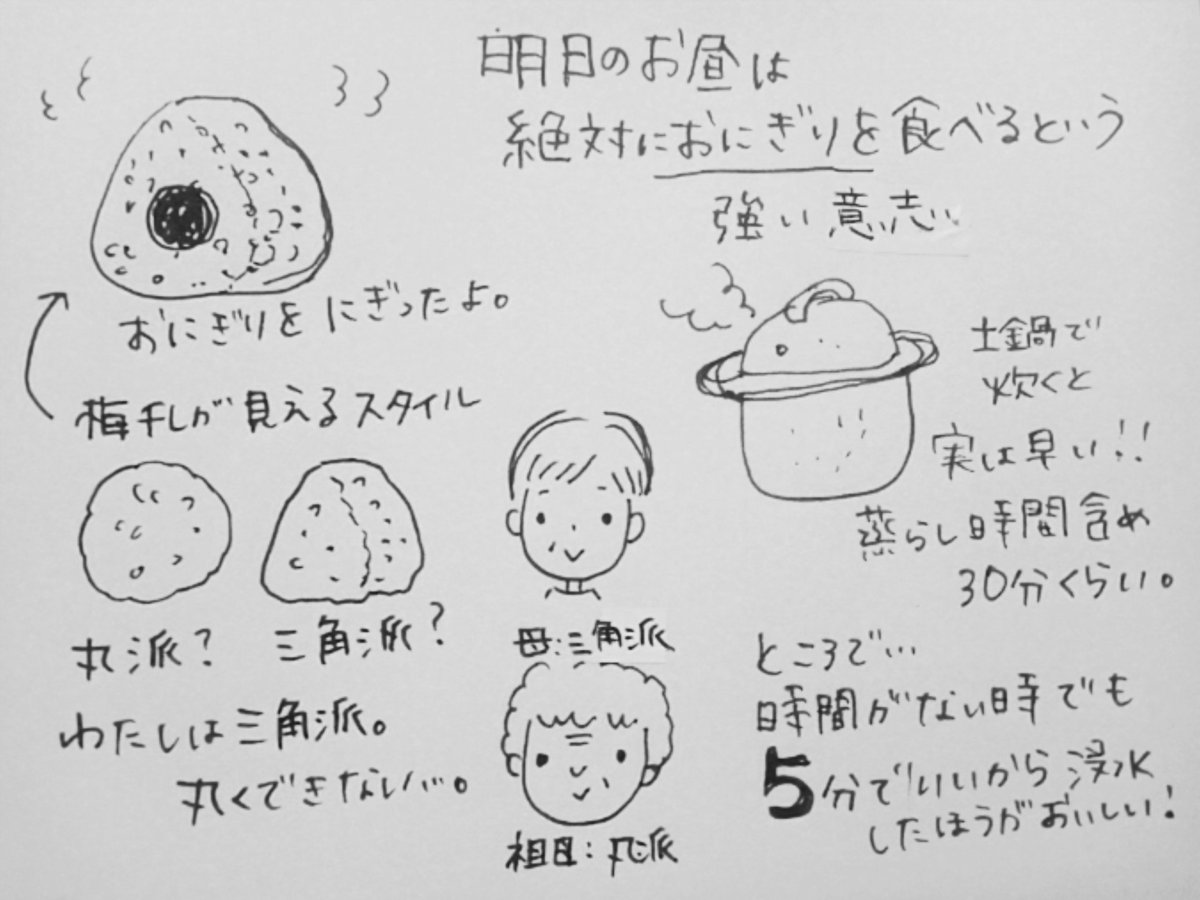 明日のお昼は
絶対におにぎりを食べるという
強い意志
おにぎりをにぎったよ。
梅干しが見えるスタイル
丸派?
三角派?
わたしは三角派。
丸くできない…。
母:三角派
祖母:丸派
土鍋で
炊くと
実は早い!!
蒸らし時間含め
30分くらい。
ところで…
時間がない時でも
5分でいいから浸水
したほうがおいしい!